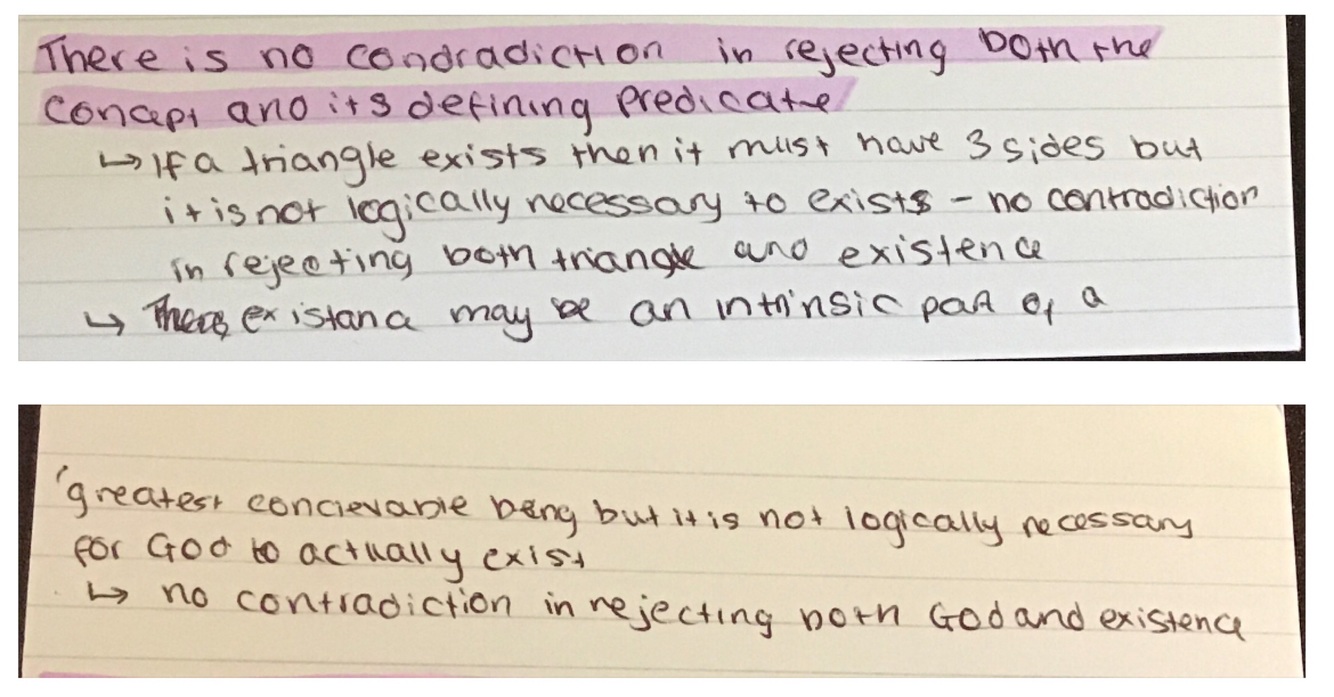 There is no condradiction in rejecting both the
concept and its defining predicate
↳ If a triangle exists then it must have 3 sides but
it is not logically necessary to exists - no contradiction
in rejecting both triangle and existence
↳ existana may be an intrinsic part of a
'greatest concievable being but it is not logically necessary
for God to actually exist
↳ no contradiction in rejecting both God and existence